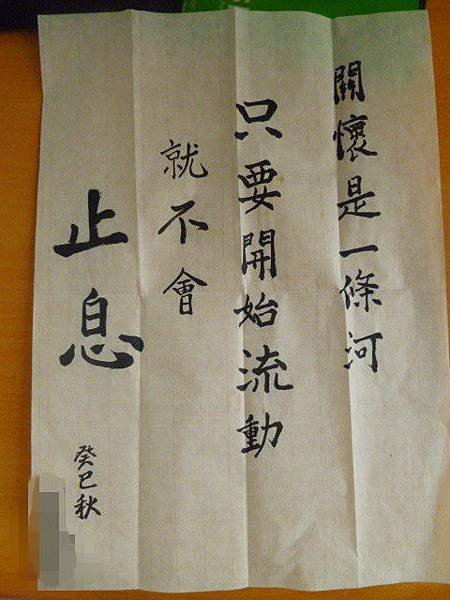 關懷是一條河
只要開始流動
就不會
止息
癸巳秋